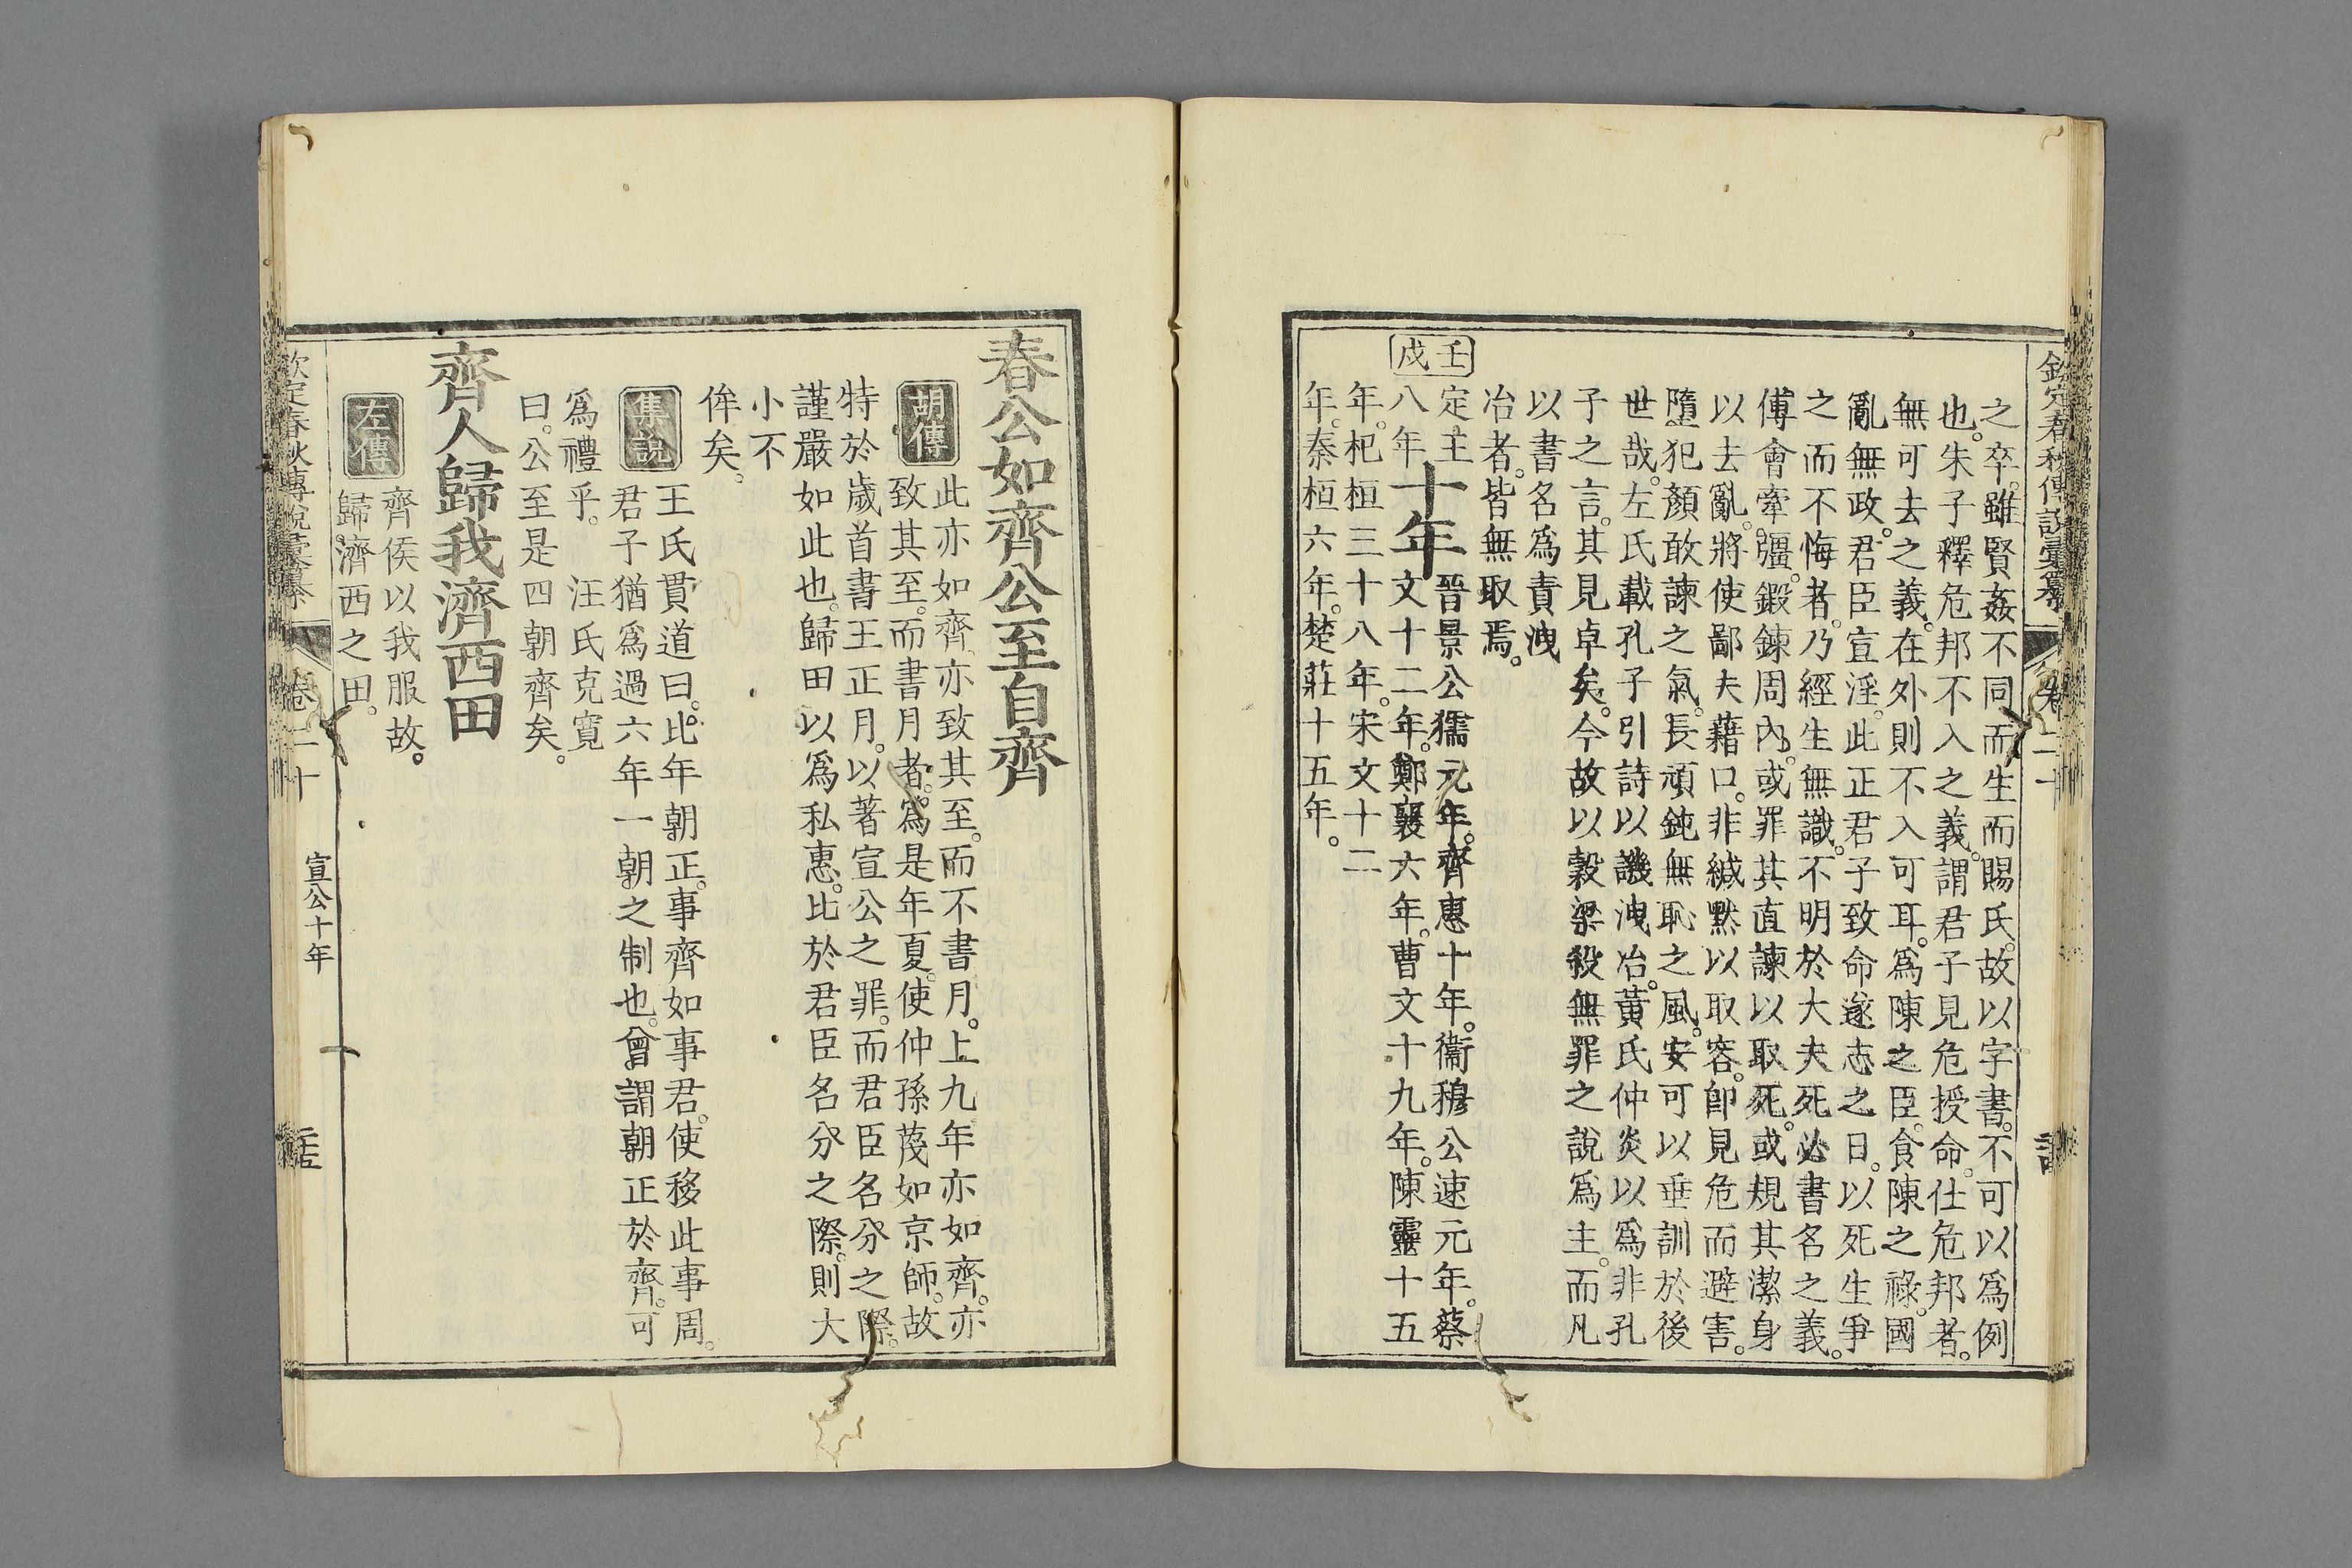 欽定春秋傳說彙纂 卷二十
之卒。雖賢姦不同而生而賜氏。故以字書。不可以爲例
也。朱子釋危邦不入之義。謂君子見危授命。仕危邦者。
無可去之義。在外則不入可耳。爲陳之臣。食陳之祿。國
亂無政。君臣宣淫。此正君子致命遂志之日。以死生爭
之而不悔者。乃經生無識。不明於大夫死必書名之義。
傅會牽彊。鍛鍊周內。或罪其直諫以取死。或規其潔身
以去亂。將使鄙夫藉口。非緘默以取容。卽見危而避害。
隳犯顏敢諫之氣。長頑鈍無恥之風。安可以垂訓於後
世哉。左氏載孔子引詩以譏洩冶。黃氏仲炎以爲非孔
子之言。其見卓矣。今故以穀梁殺無罪之說爲主。而凡
以書名爲責洩
冶者。皆無取焉。
壬戌
定王八年
十年
晉景公獳元年。齊惠十年。衞穆公速元年。蔡
文十二年。鄭襄六年。曹文十九年。陳靈十五
年。杞桓三十八年。宋文十二
年。秦桓六年。楚莊十五年。
春公如齊公至自齊
胡傳
此亦如齊。亦致其至。而不書月。上九年亦如齊。亦
致其至。而書月者。爲是年夏。使仲孫蔑如京師。故
特於歲首書王正月。以著宣公之罪。而君臣名分之際。
謹嚴如此也。歸田以爲私惠。比於君臣名分之際。則大
小不
侔矣。
集說
王氏貫道曰。比年朝正。事齊如事君。使移此事周。
君子猶爲過六年一朝之制也。曾謂朝正於齊。可
爲禮乎。 汪氏克寬
曰。公至是四朝齊矣。
齊人歸我濟西田
左傳
齊侯以我服故。
歸濟西之田。
欽定春秋傳說彙纂 卷二十 宣公十年